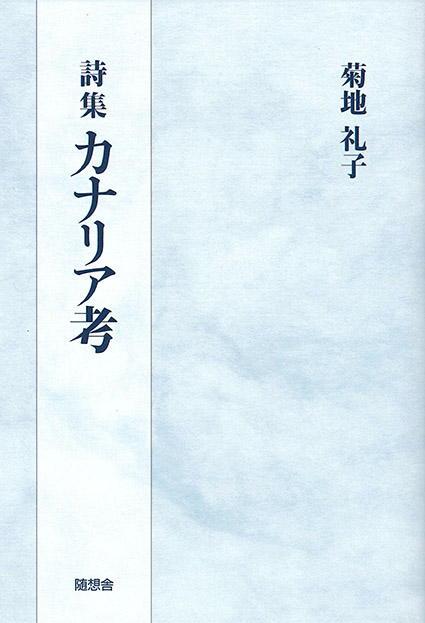 菊地 礼子
詩集 カナリア考
随想舎